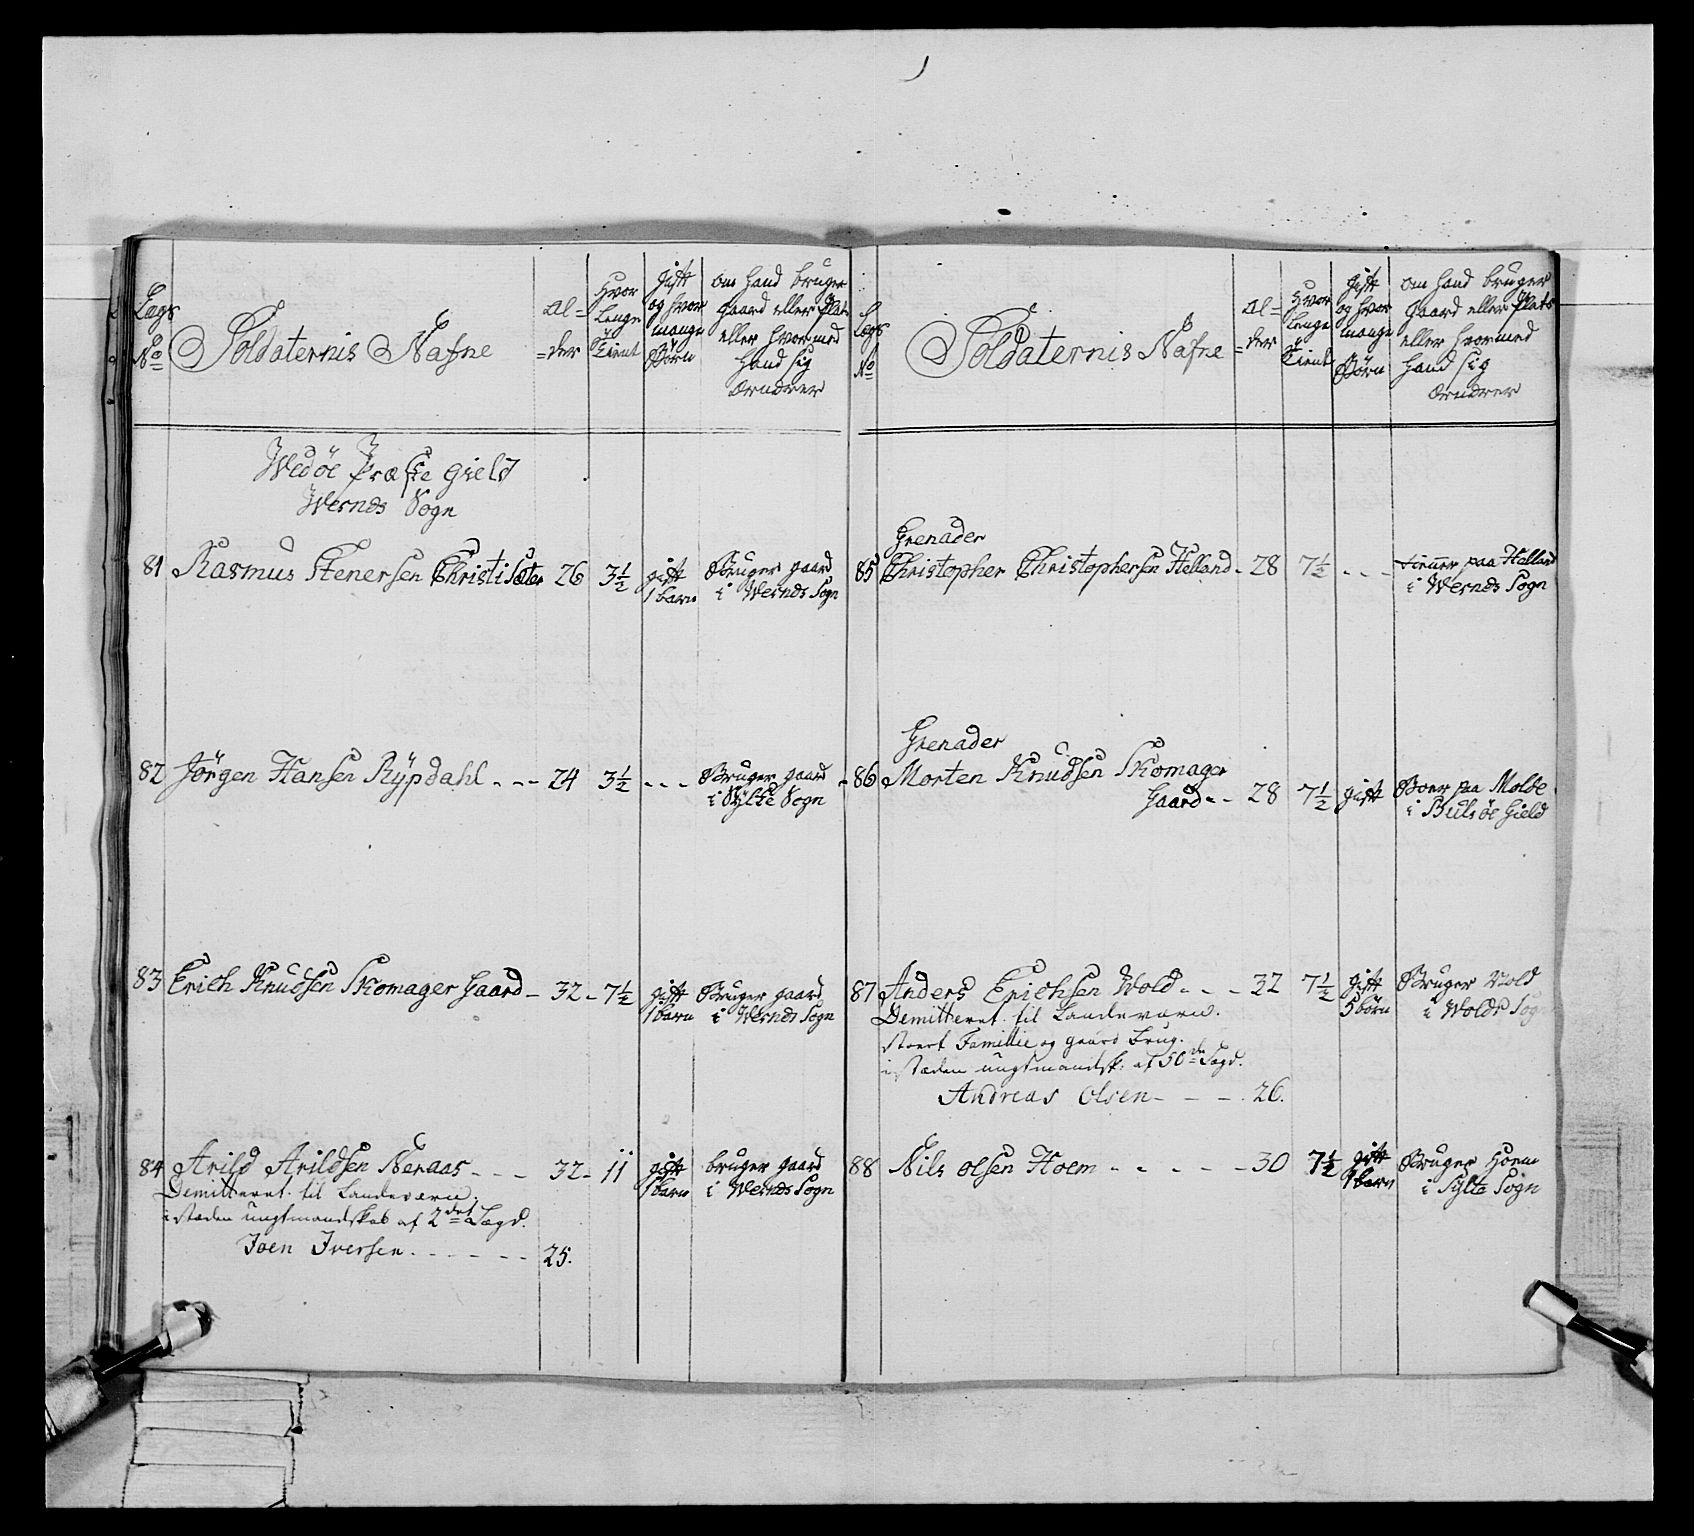 Lægs
No
Soldaternis Nafne
Al=
=der
Hvor
lenge
Tient
gift
og hvor
mange
Børn
om hand bruger
gaard eller Plats
eller hvormed
hand sig
Ærnærer
Wedøe Præste gield
Wernds Sogn
81 Rasmus Stenersen Christisæter 26 3½ gift 1 barn Bruger gaard
i Wernds Sogn
82 Jørgen Hansen Rÿpdahl - - - 24 3½ - - - Bruger gaard
i Sylte Sogn
83 Erich Knudsen Skomager Gaard - 32 - 7½ gift 1 barn Bruger gaard
i Wernds Sogn
84 Arild Arildsen Neraas - - - 32 - 11 gift 1 barn bruger gaard
i Wernds Sogn
Demitteret til Landeværn.
i stæden ungtmandskab af 2det Lægd.
Joen Iversen - - - - - - 25.
Lægs
No
Soldaternis Nafne
Al=
=der
Hvor
lenge
Tient
gift
og hvor
mange
Børn
om hand bruger
gaard eller Plats
eller hvormed
hand sig
Ærnærer
Grenader
85 Christopher Christophersen Helland - 28 7½ - - - tienner paa Helland
i Wernds Sogn
Grenader
86 Morten Knudsen Skomager
Gaard - - 28 7½ gift Boer paa Molde
i Bulsøe Gield
87 Anders Erichsen Wold - - - 32 7½ gift 5 børn Bruger Wold
i Wolds Sogn
Demitteret til Landeværn.
stoert Familie og gaard brug.
i stæden ungtmandsk: af 50de Lægd.
Andreas Olsen - - - 26.
88 Nils Olsen Hoem - - - - - 30 7½ gift 1 barn Bruger Hoem
i Sylte Sogn